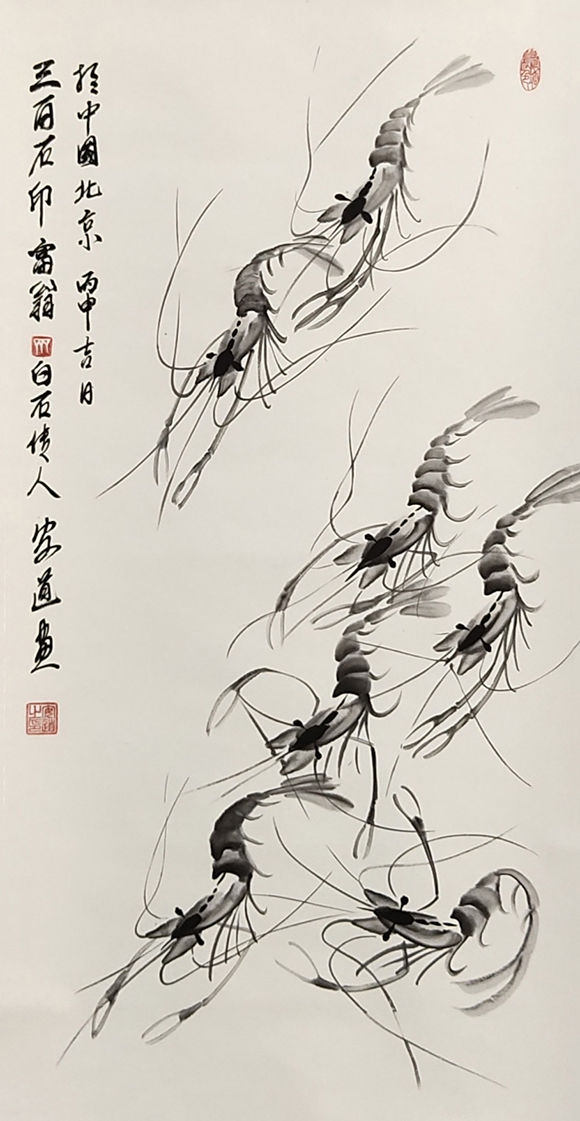 於中國北京 丙申吉日
三百石印富翁 白石传人 安道画